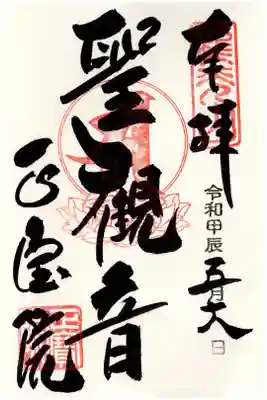 奉拝
令和甲辰五月六日
聖観音
正宝院